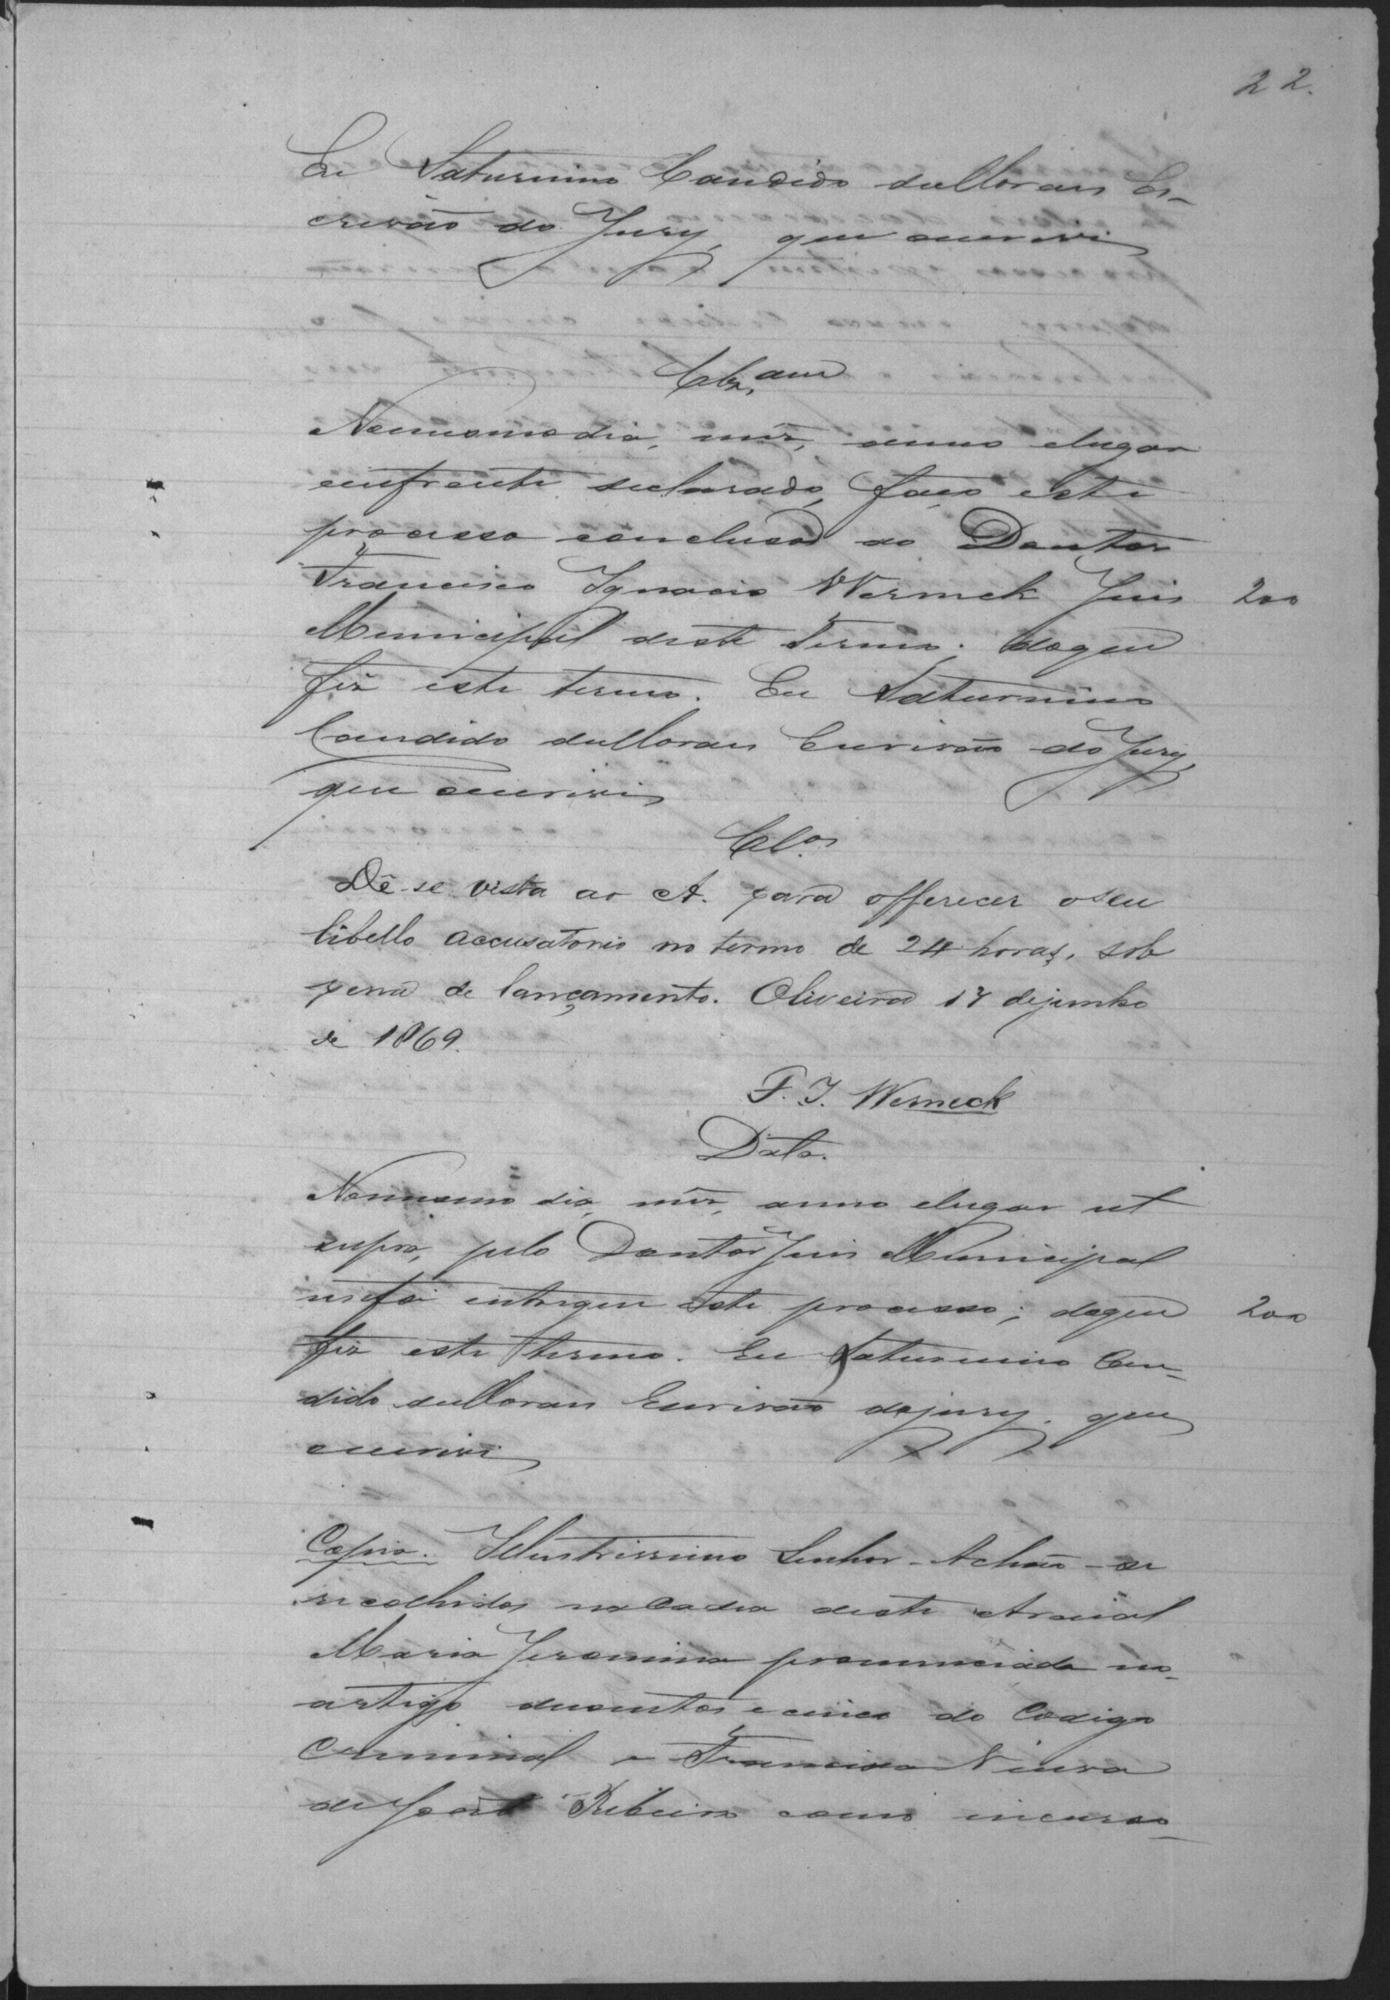 22.
Eu Saturnino Candido de Moraes Es-
crivão do Jury, que escrevi
Clz.am
No mesmo dia, mez, anno e lugar
em frente declarado, faço este
processo concluso ao Doutor
Francisco Ignacio Werneck Juis 200
Municipal deste Termo; do que
fiz este termo. Eu Saturnino
Candido de Moraes Escrivão do Jury,
que escrevi
Cl.os
Dê-se vista ao A. para offerecer o seu
libello accusatorio no termo de 24 horas, sob
pena de lançamento. Oliveira 17 de junho
de 1869.
F. I. Werneck
Data.
No mesmo dia, mez, anno e lugar ut
supra, pelo Doutor Juis Municipal
me foi entregue este processo; do que 200
fiz este termo. Eu Saturnino Can-
dido de Moraes Escrivão do jury, que
escrevi
Copia. Illustrissimo Senhor - Achão-se
recolhidos na Cadea deste Arraial
Maria Jeronima pronunciada no
artigo dusentos e cinco do Codigo
Criminal e Francisco
de José Ribeiro como incurso